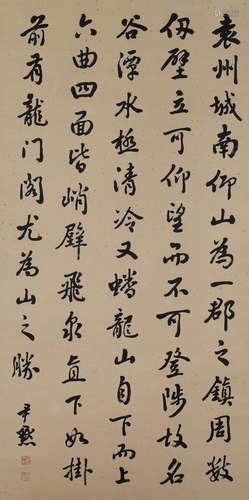 袁州城南仰山為一郡之鎮周數
仞壁立可仰望而不可登陟故名
谷潭水極清冷又蟠龍山自下而上
六曲四面皆峭壁飛泉直下如掛
前有龍门阁尤為山之勝
尹默